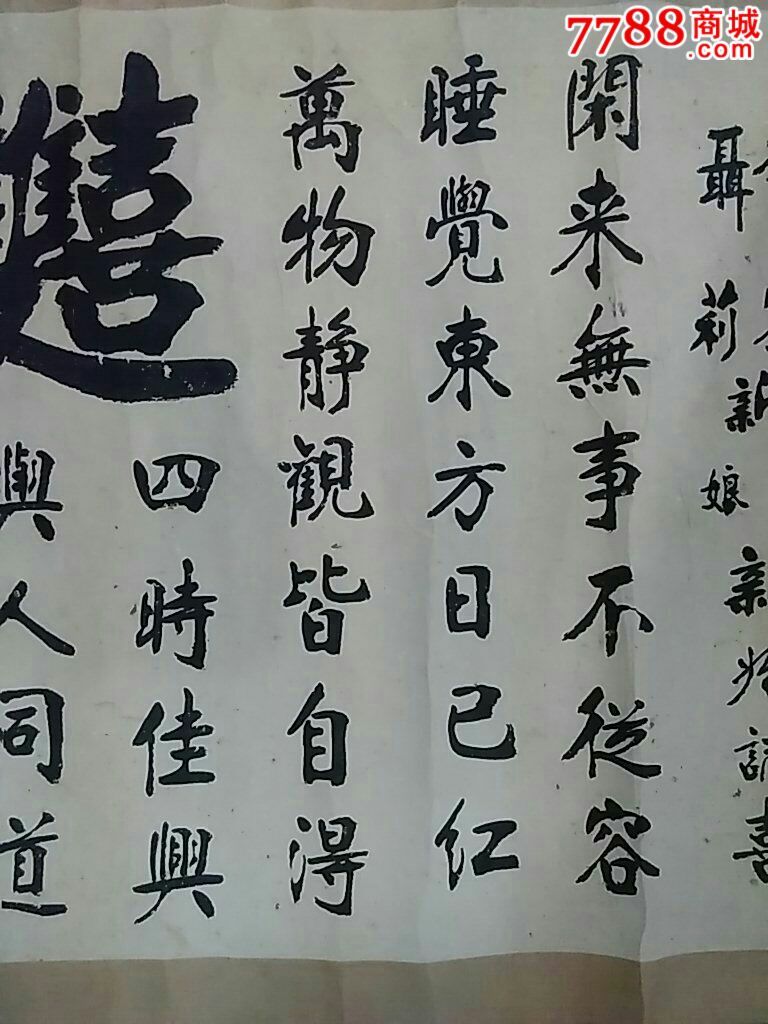 7788商城
.com
聶莉新娘
新婚誌喜
閑来無事不從容
睡覺東方日已红
萬物静觀皆自得
四時佳興
與人同道